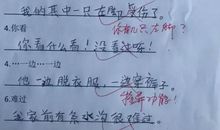 我的其中一只左脚受伤了。
你有几只左脚？
4.你看
你看什么看！没看过呀！
5.一边……一边
他一边脱衣服，一边穿裤子。
6.难过
我家前有条水沟很难过。